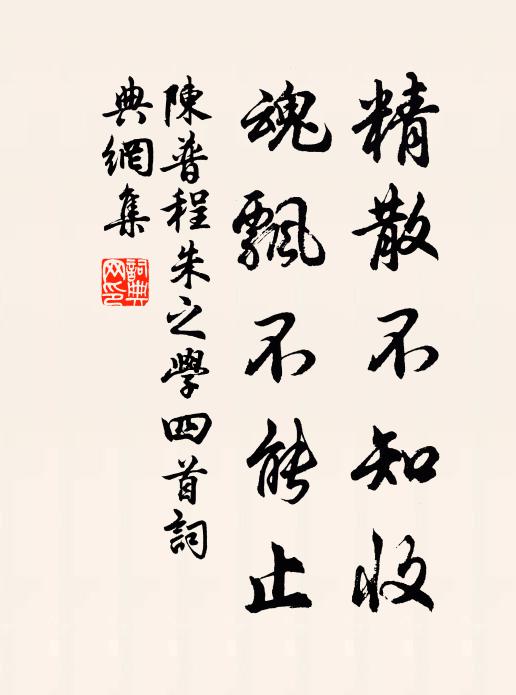 精散不知收
魂飄不能止
陳普程朱之學四首詞
典網集
詞典
网印